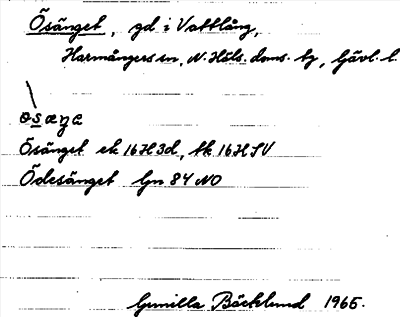 Ösänget, gd i Vattlång,
Harmångers sn, N. Häls. doms. tg, Gävl. l.
ɵsæŋɛ
Ösänget ek 16H3d, tk 16HSV
Ödesänget Gn 84 NO
Gunilla Bäcklund 1965.